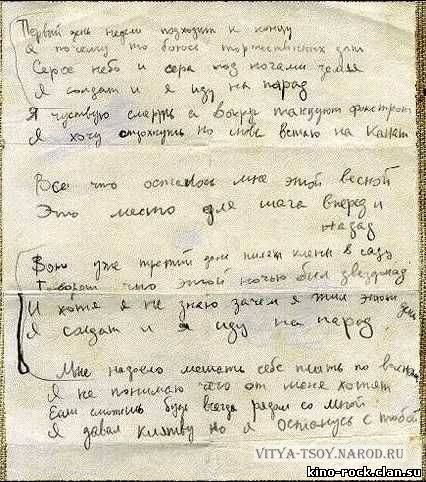 Первый день недели подходит к концу
А почему то боюсь торжественных дат
Серое небо и сера под ногами земля
Я солдат и я иду на парад
Я чуствую смерть а вокруг танцуют фокстрот
Я хочу отдохнуть но снова встаю на канат
Все что осталось мне этой весной
Это место для шага вперед и
назад
Вот уже третий день пилят клены в саду
Говорят что этой ночью был звездопад
И хотя я не знаю зачем я жил этот день
Я солдат и я иду на парад
Мне надоело мешать себе плыть по
Я не понимаю чего от меня хотят
Если сможешь будь всегда рядом со мной
Я давал клятву но я останусь с тобой
VITYA-TSOY.NAROD.RU
kino-rock.clan.su